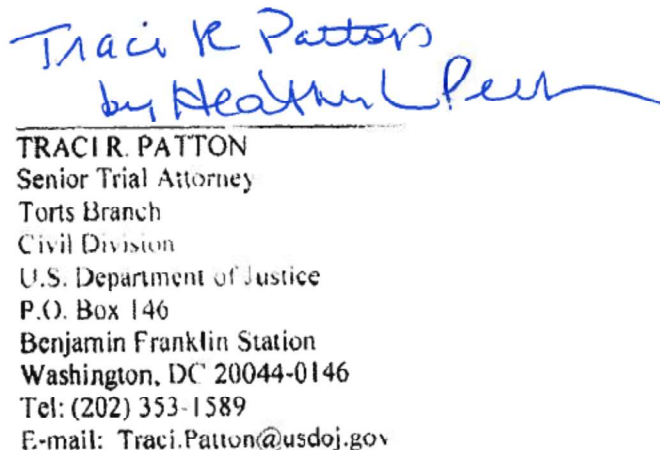 Traci R Patton
by Heather L
TRACI R. PATTON
Senior Trial Attorney
Torts Branch
Civil Division
U.S. Department of Justice
P.O. Box 146
Benjamin Franklin Station
Washington, DC 20044-0146
Tel: (202) 353-1589
E-mail: Traci.Patton@usdoj.gov